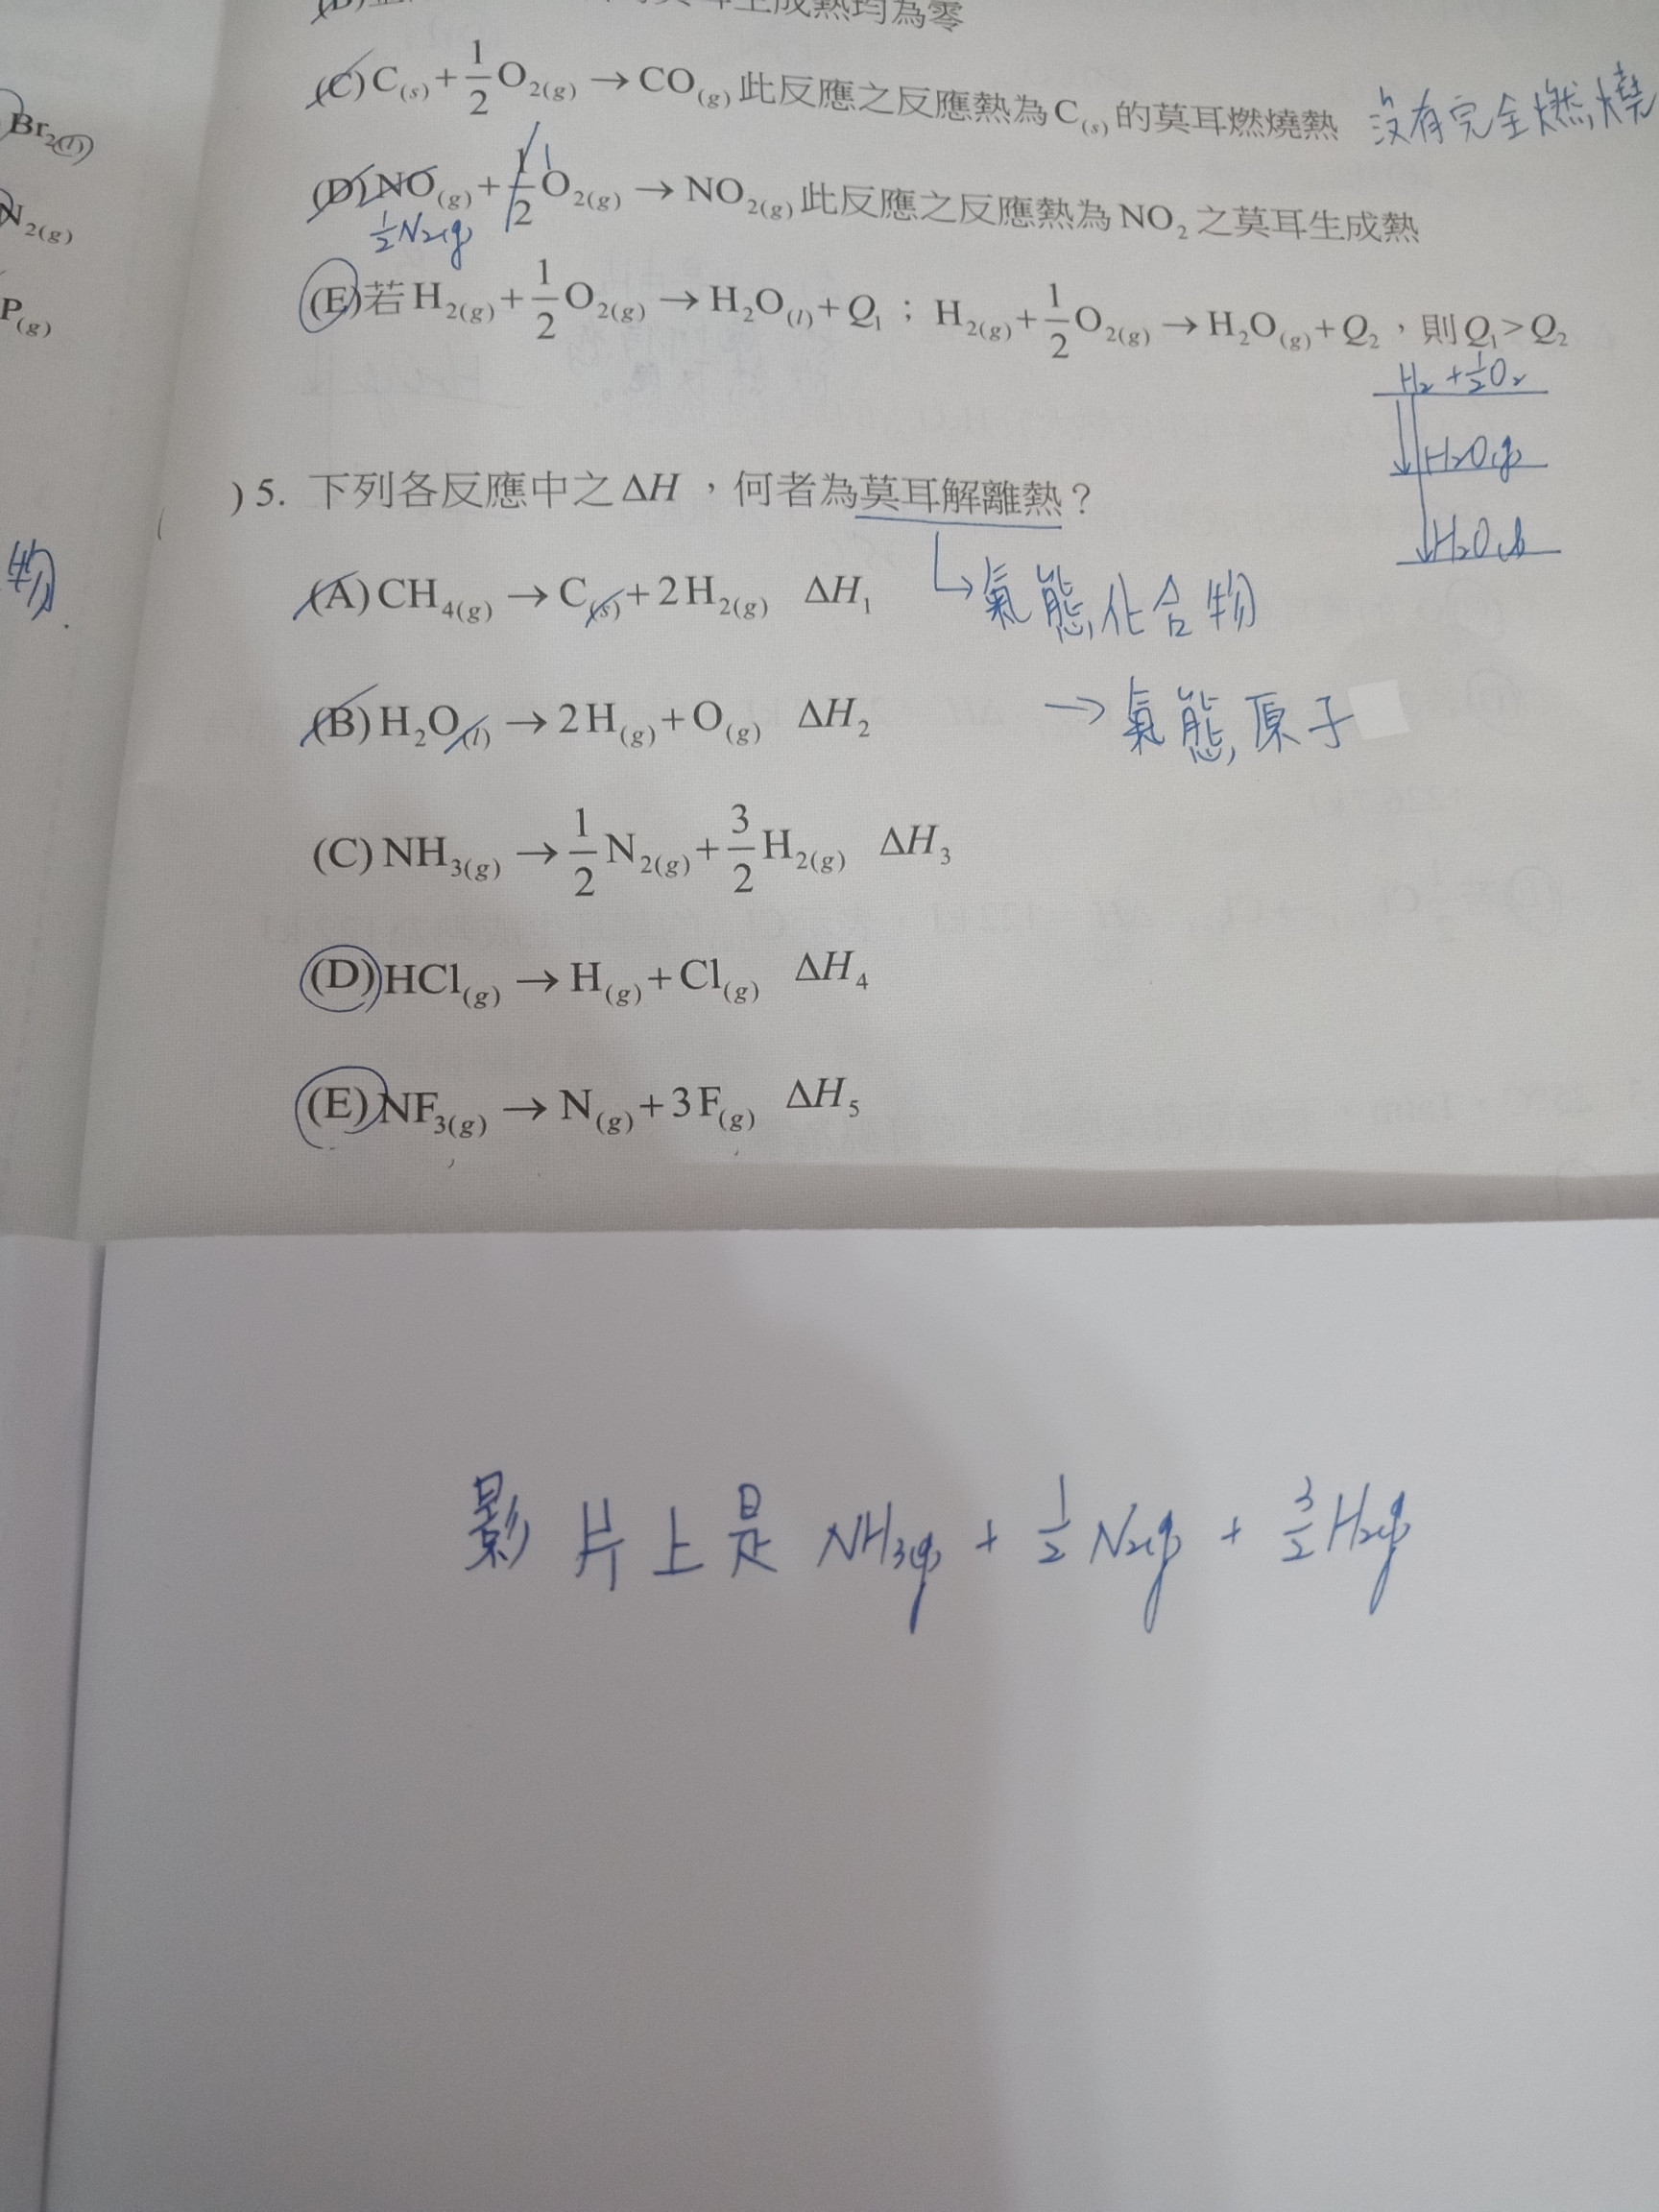 莫耳生成熱均為零
(C) C(s) + 1/2 O2(g) → CO(g) 此反應之反應熱為 C(s) 的莫耳燃燒熱 沒有完全燃燒
Br2(l)
(D) NO(g) + 1/2 O2(g) → NO2(g) 此反應之反應熱為 NO2 之莫耳生成熱
1
1/2 N2(g)
N2(g)
(E) 若 H2(g) + 1/2 O2(g) → H2O(l) + Q1 ; H2(g) + 1/2 O2(g) → H2O(g) + Q2 ,則 Q1 > Q2
P(g)
H2 + 1/2 O2
H2O(g)
H2O(l)
) 5. 下列各反應中之 ΔH ,何者為莫耳解離熱?
物
(A) CH4(g) → C(s) + 2H2(g) ΔH1
氣態化合物
(B) H2O(l) → 2H(g) + O(g) ΔH2
→ 氣態原子
(C) NH3(g) → 1/2 N2(g) + 3/2 H2(g) ΔH3
(D) HCl(g) → H(g) + Cl(g) ΔH4
(E) NF3(g) → N(g) + 3F(g) ΔH5
影片上是 NH3(g) + 1/2 N2(g) + 3/2 H2(g)